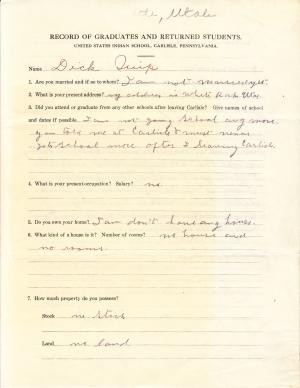 Utah
RECORD OF GRADUATES AND RETURNED STUDENTS.
UNITED STATES INDIAN SCHOOL, CARLISLE, PENNSYLVANIA.
Name Dick Quip
1. Are you married and if so to whom? I am not
2. What is your present address? my address is White Rock Utah.
3. Did you attend or graduate from any other schools after leaving Carlisle? Give names of school
and dates if possible. I am not going school any more
you told me at Carlisle I must never
school more after I leaving Carlisle.
4. What is your present occupation? Salary? no.
5. Do you own your home? I am don't have any house.
6. What kind of a house is it? Number of rooms? no house and
no rooms.
7. How much property do you possess?
Stock no Stock
Land no land